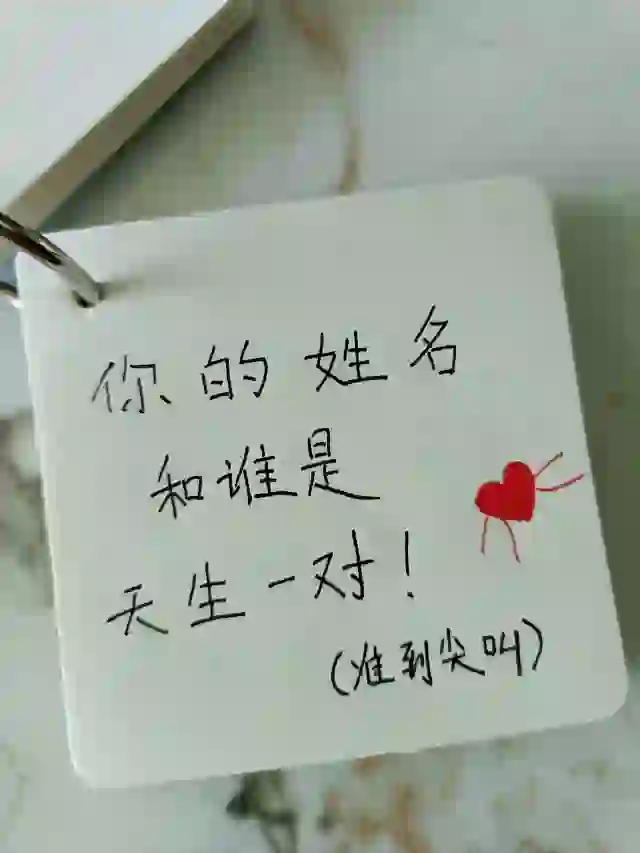 你的姓名
和谁是
天生一对！
（准到尖叫）